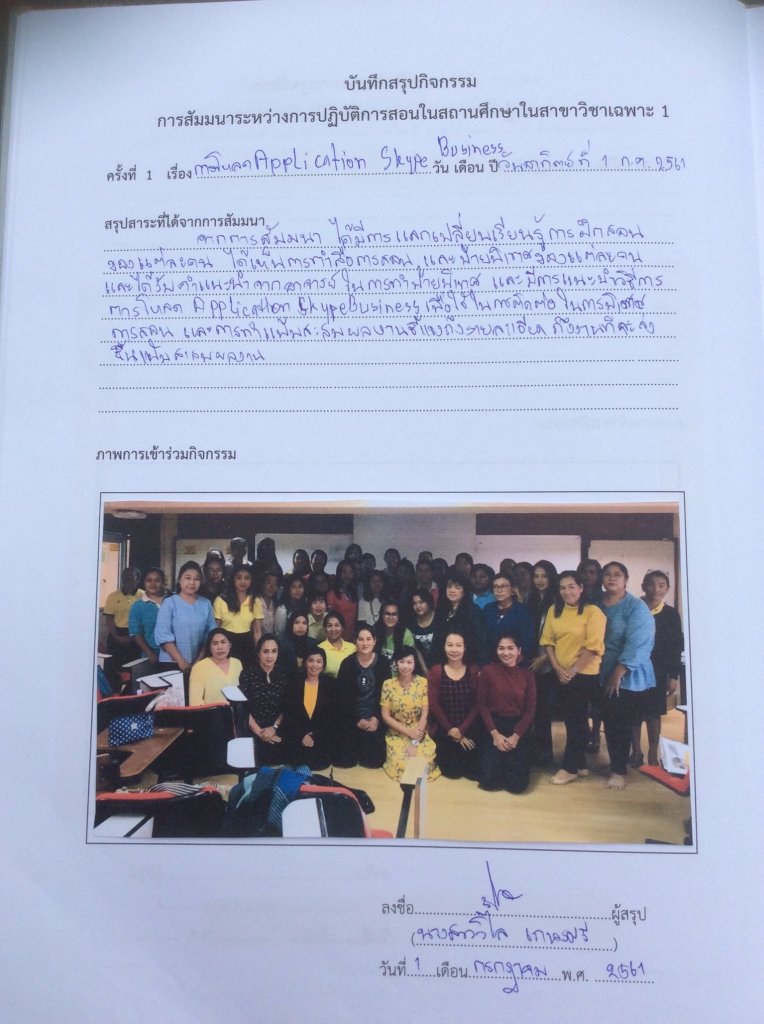 บันทึกสรุปกิจกรรม
การสัมมนาระหว่างการปฏิบัติการสอนในสถานศึกษาในสาขาวิชาเฉพาะ 1
ครั้งที่ 1 เรื่อง การโหลด Application Skype Business วัน เดือน ปี วันอาทิตย์ที่ 1 ก.ค. 2561
สรุปสาระที่ได้จากการสัมมนา
จากการสัมมนา ได้มีการแลกเปลี่ยนเรียนรู้การฝึกสอน
ของแต่ละคน ได้เห็นการทำสื่อการสอน และป้ายนิเทศของแต่ละคน
และได้รับคำแนะนำจากอาจารย์ ในการทำป้ายนิเทศ และมีการแนะนำวิธีการ
การโหลด Application SkypeBusiness เพื่อใช้ในการติดต่อ ในการนิเทศ
การสอน และการทำแฟ้มสะสมผลงานชี้แจงถึงรายละเอียด ถึงงานที่จะลง
ในแฟ้มสะสมผลงาน
ภาพการเข้าร่วมกิจกรรม
ลงชื่อ ผู้สรุป
(นางสาววิไล )
วันที่ 1 เดือน กรกฎาคม พ.ศ. 2561